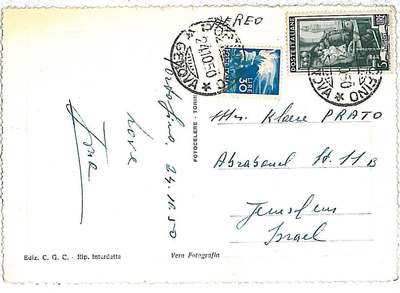 AEREO
POSTE ITALIANE
LIRE
30
5
24.10.50
GENOVA
Portofino, 24.10.50
love
Mrs. Klara PRATO
Abrabanel St. 11 B
Jerusalem
Israel
FOTOCELERE - TORINO
Ediz. C. G. C. - Rip. Interdetta
Vera Fotografia